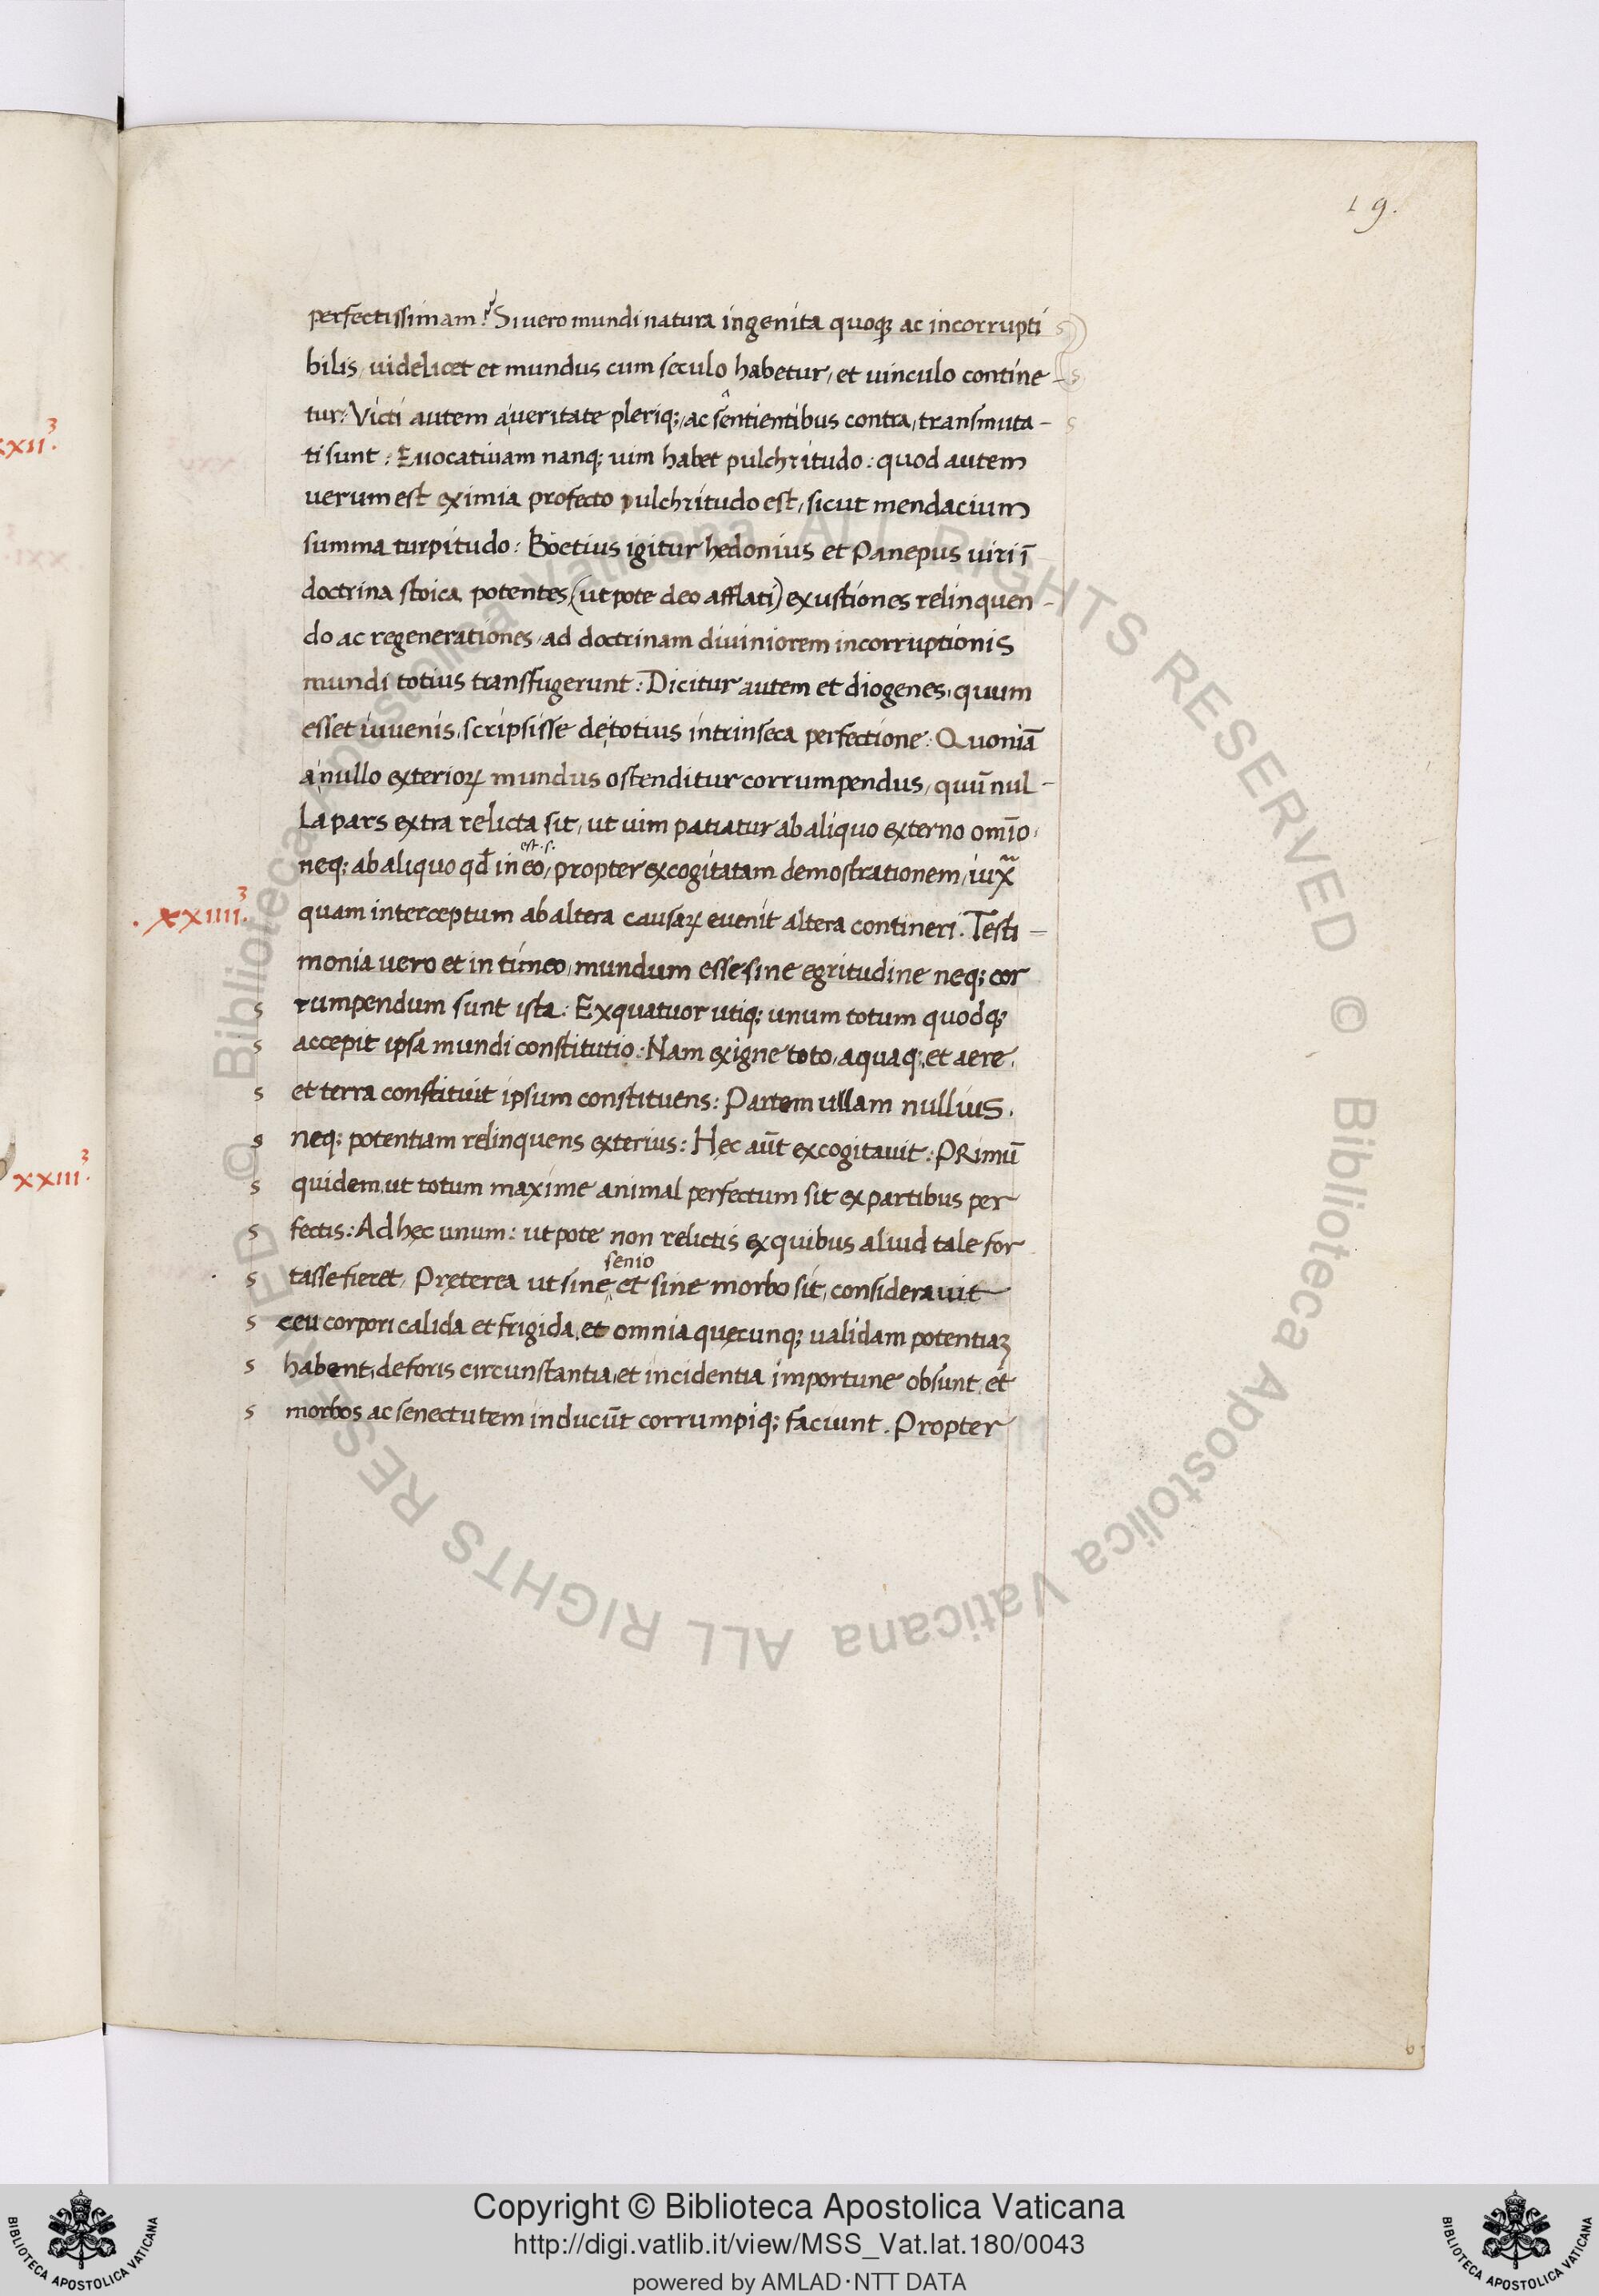 19.
perfectissimam? Si uero mundi natura ingenita quoq; ac incorrupti
bilis, uidelicet et mundus cum seculo habetur, et uinculo contine-
tur: Victi autem a ueritate pleriq;, ac sentientibus contra, transmuta-
ti sunt: Euocatiuam nanq; uim habet pulchritudo: quod autem
uerum est eximia profecto pulchritudo est, sicut mendacium
summa turpitudo: Boetius igitur hedonius et Panepus uiri ī
doctrina stoica potentes (utpote deo afflati) exustiones relinquen-
do ac regenerationes, ad doctrinam diuiniorem incorruptionis
mundi totius transfugerunt: Dicitur autem et diogenes, quum
esset iuuenis, scripsisse de totius intrinseca perfectione: Quoniā
a nullo exterioꝝ mundus ostenditur corrumpendus, quū nul-
la pars extra relicta sit, ut uim patiatur ab aliquo externo omīo,
est .s.
neq; ab aliquo qđ in eo, propter excogitatam demostrationem, iuxͣ
.xxiiii.³
quam interceptum ab altera causaꝝ euenit altera contineri. Testi-
monia uero et in timeo, mundum esse sine egritudine neq; cor
s rumpendum sunt ista: Ex quatuor utiq; unum totum quodq;
s accepit ipsa mundi constitutio: Nam ex igne toto, aquaq;, et aere,
s et terra constituit ipsum constituens: Partem ullam nullius,
s neq; potentiam relinquens exterius: Hęc aūt excogitauit: PRimū
s quidem, ut totum maxime animal perfectum sit ex partibus per
s fectis: Ad hęc unum: utpote non relictis ex quibus aliud tale for
senio
s tasse fieret, Pręterea ut sine et sine morbo sit, considerauit
s ceu corpori calida et frigida, et omnia quęcunq; ualidam potentiaꝫ
s habent, deforis circunstantia, et incidentia importune obsunt, et
s morbos ac senectutem inducūt corrumpiq; faciunt. Propter
xxii.³
xxiii.³
Copyright © Biblioteca Apostolica Vaticana
http://digi.vatlib.it/view/MSS_Vat.lat.180/0043
powered by AMLAD·NTT DATA
BIBLIOTECA APOSTOLICA VATICANA
BIBLIOTECA APOSTOLICA VATICANA
© Biblioteca Apostolica Vaticana ALL RIGHTS RESERVED
© Biblioteca Apostolica Vaticana ALL RIGHTS RESERVED